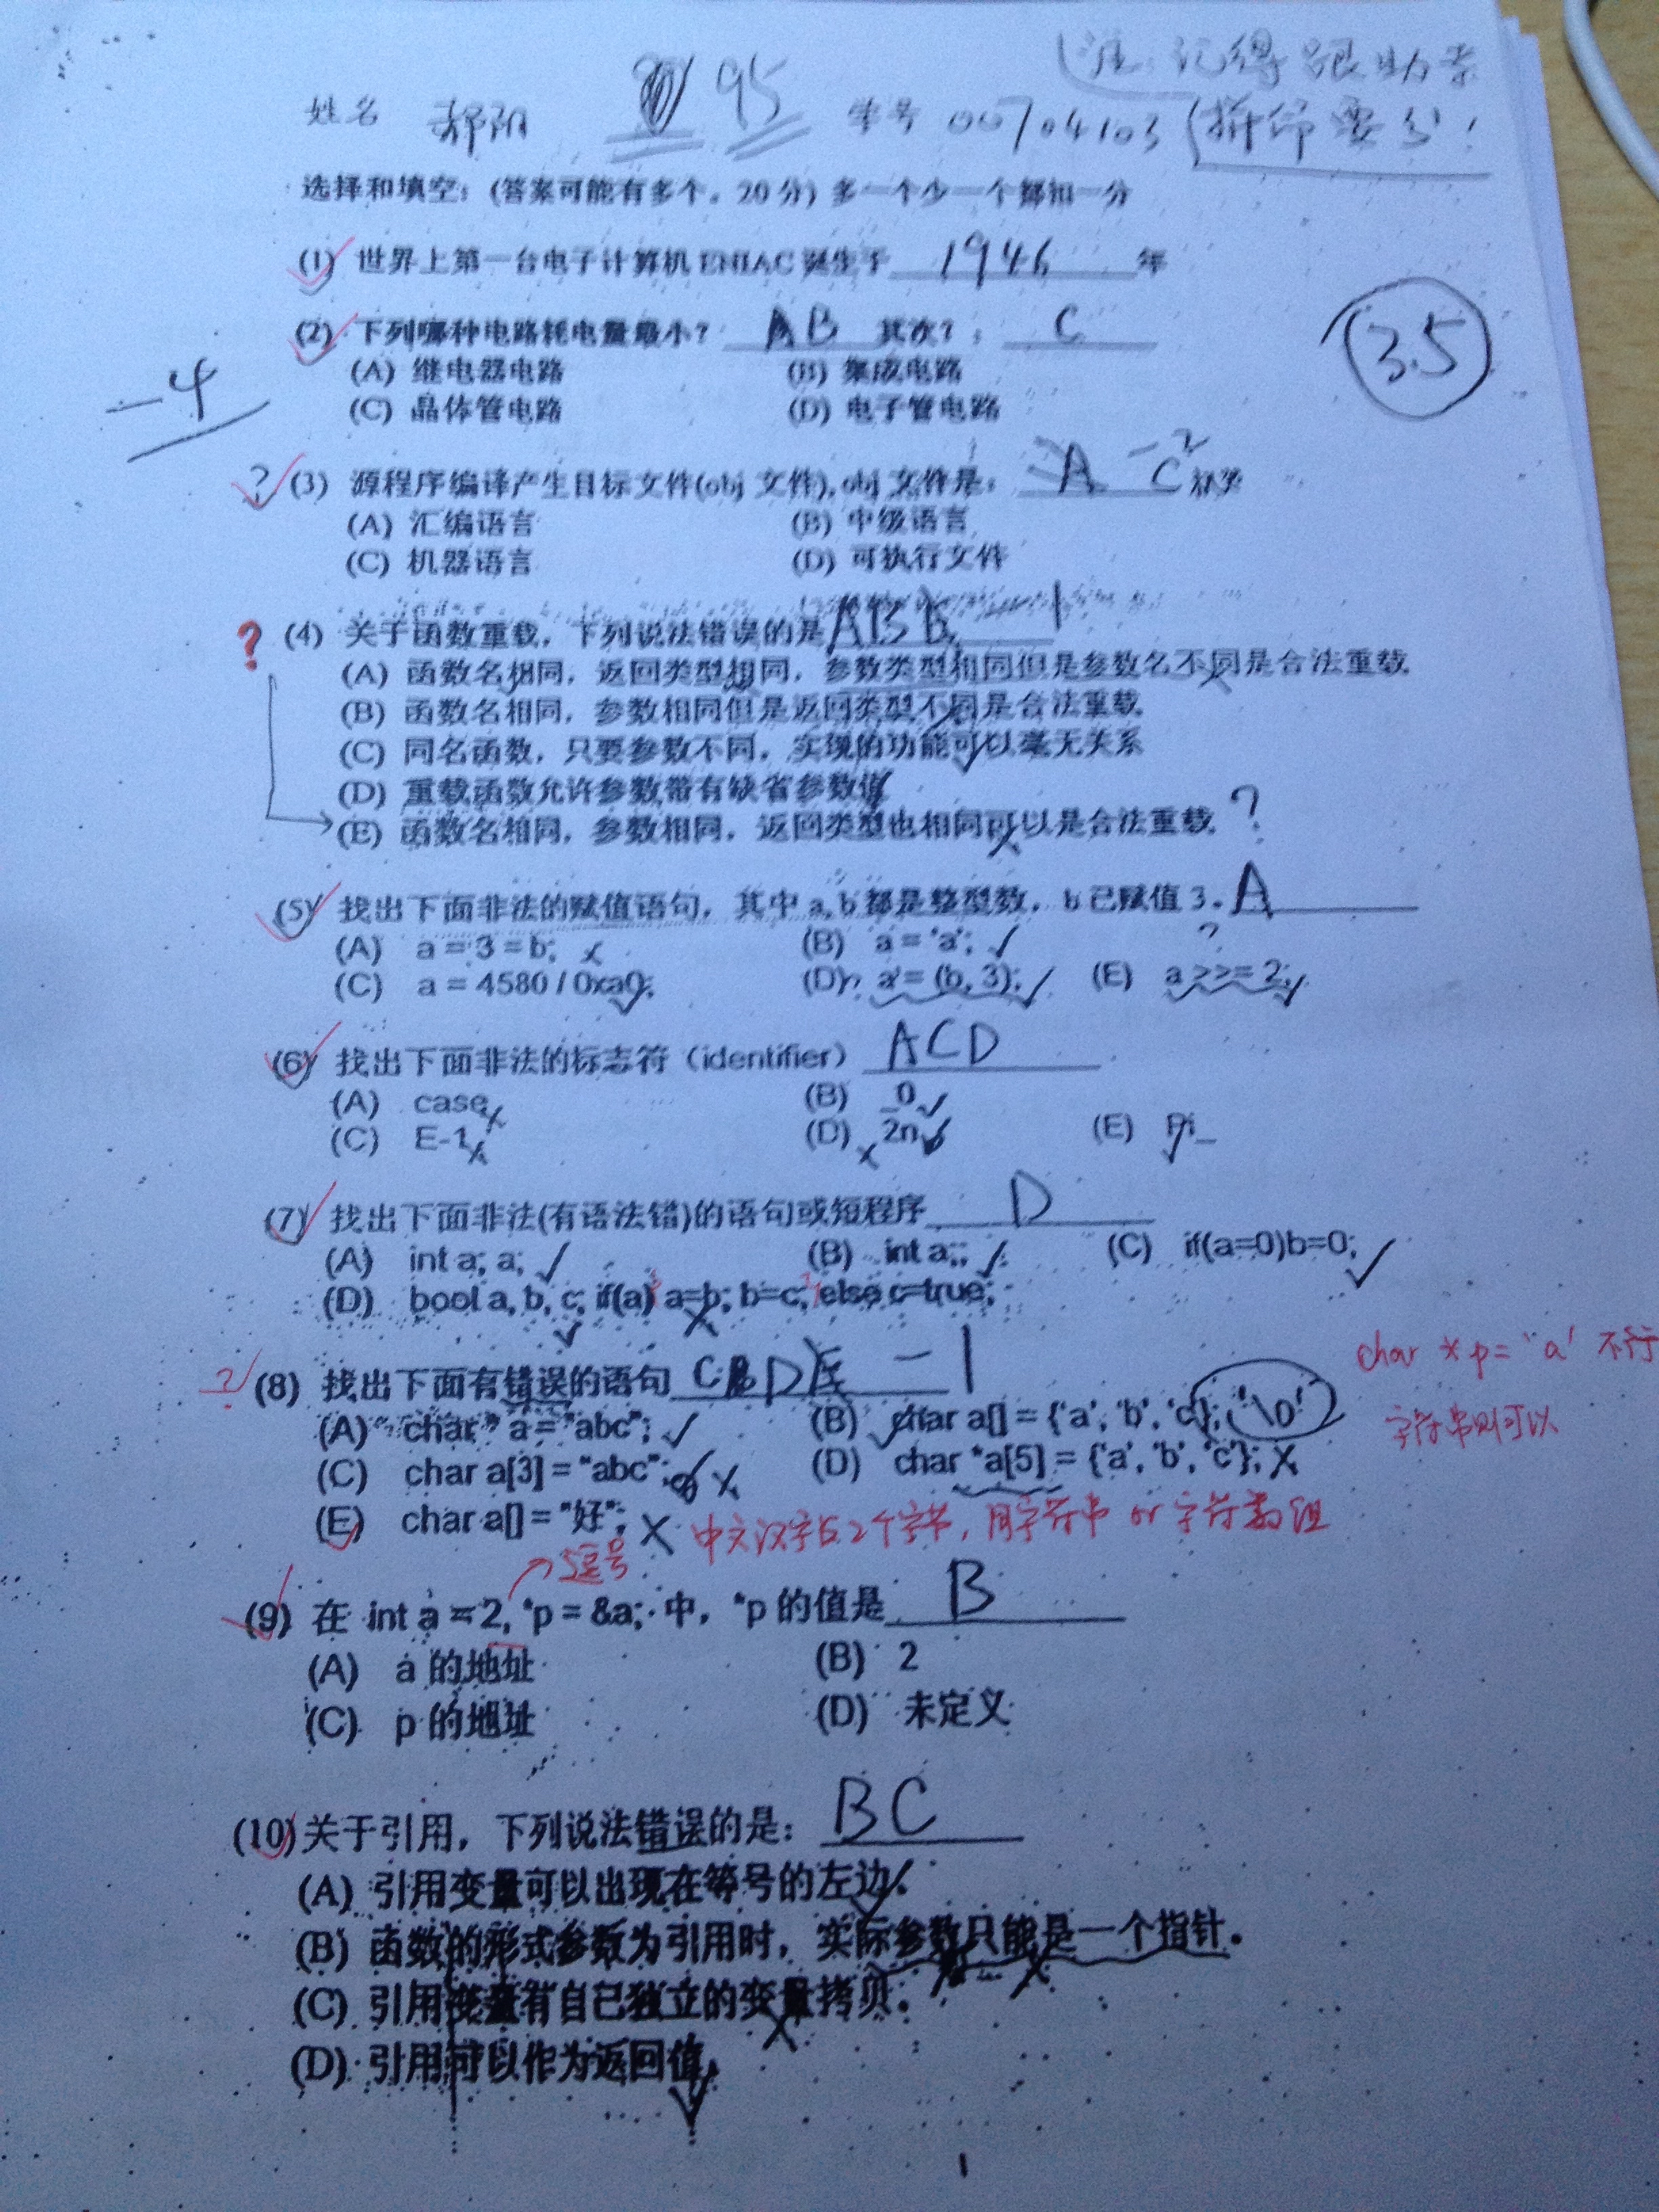 注: 记得跟助教
姓名 95 学号 00704103 要分!
选择和填空:(答案可能有多个。20分) 多一个少一个都扣一分
(1) 世界上第一台电子计算机 ENIAC 诞生于 1946 年
(2) 下列哪种电路耗电量最小? AB 其次?: C
3.5
(A) 继电器电路 (B) 集成电路
-4
(C) 晶体管电路 (D) 电子管电路
? (3) 源程序编译产生目标文件(obj 文件),obj 文件是: A C -2
(A) 汇编语言 (B) 中级语言
(C) 机器语言 (D) 可执行文件
? (4) 关于函数重载,下列说法错误的是 AB E
(A) 函数名相同,返回类型相同,参数类型相同但是参数名不同是合法重载
(B) 函数名相同,参数相同但是返回类型不同是合法重载
(C) 同名函数,只要参数不同,实现的功能可以毫无关系
(D) 重载函数允许参数带有缺省参数值
(E) 函数名相同,参数相同,返回类型也相同可以是合法重载 ?
(5) 找出下面非法的赋值语句,其中 a, b 都是整型数,b 已赋值 3。 A
(A) a = 3 = b; (B) a = 'a';
(C) a = 4580 / 0xa0; (D) a = (b, 3); (E) a >>= 2;
(6) 找出下面非法的标志符(identifier) ACD
(A) case (B) _0
(C) E-1 (D) 2n (E) Pi_
(7) 找出下面非法(有语法错)的语句或短程序 D
(A) int a; a; (B) int a;; (C) if(a=0)b=0;
(D) bool a, b, c; if(a) a=b; b=c; else c=true;
? (8) 找出下面有错误的语句 C D E -1
char *p = 'a' 不行
字符串则可以
(A) char* a = "abc"; (B) char a[] = {'a', 'b', 'c'}; '\0'
(C) char a[3] = "abc"; (D) char *a[5] = {'a', 'b', 'c'};
(E) char a[] = "好"; 中文汉字占2个字节,用字符串 or 字符数组
逗号
(9) 在 int a = 2, *p = &a; 中,*p 的值是 B
(A) a 的地址 (B) 2
(C) p 的地址 (D) 未定义
(10) 关于引用,下列说法错误的是: BC
(A) 引用变量可以出现在等号的左边.
(B) 函数的形式参数为引用时,实际参数只能是一个指针。
(C) 引用变量有自己独立的变量拷贝。
(D) 引用可以作为返回值.
1